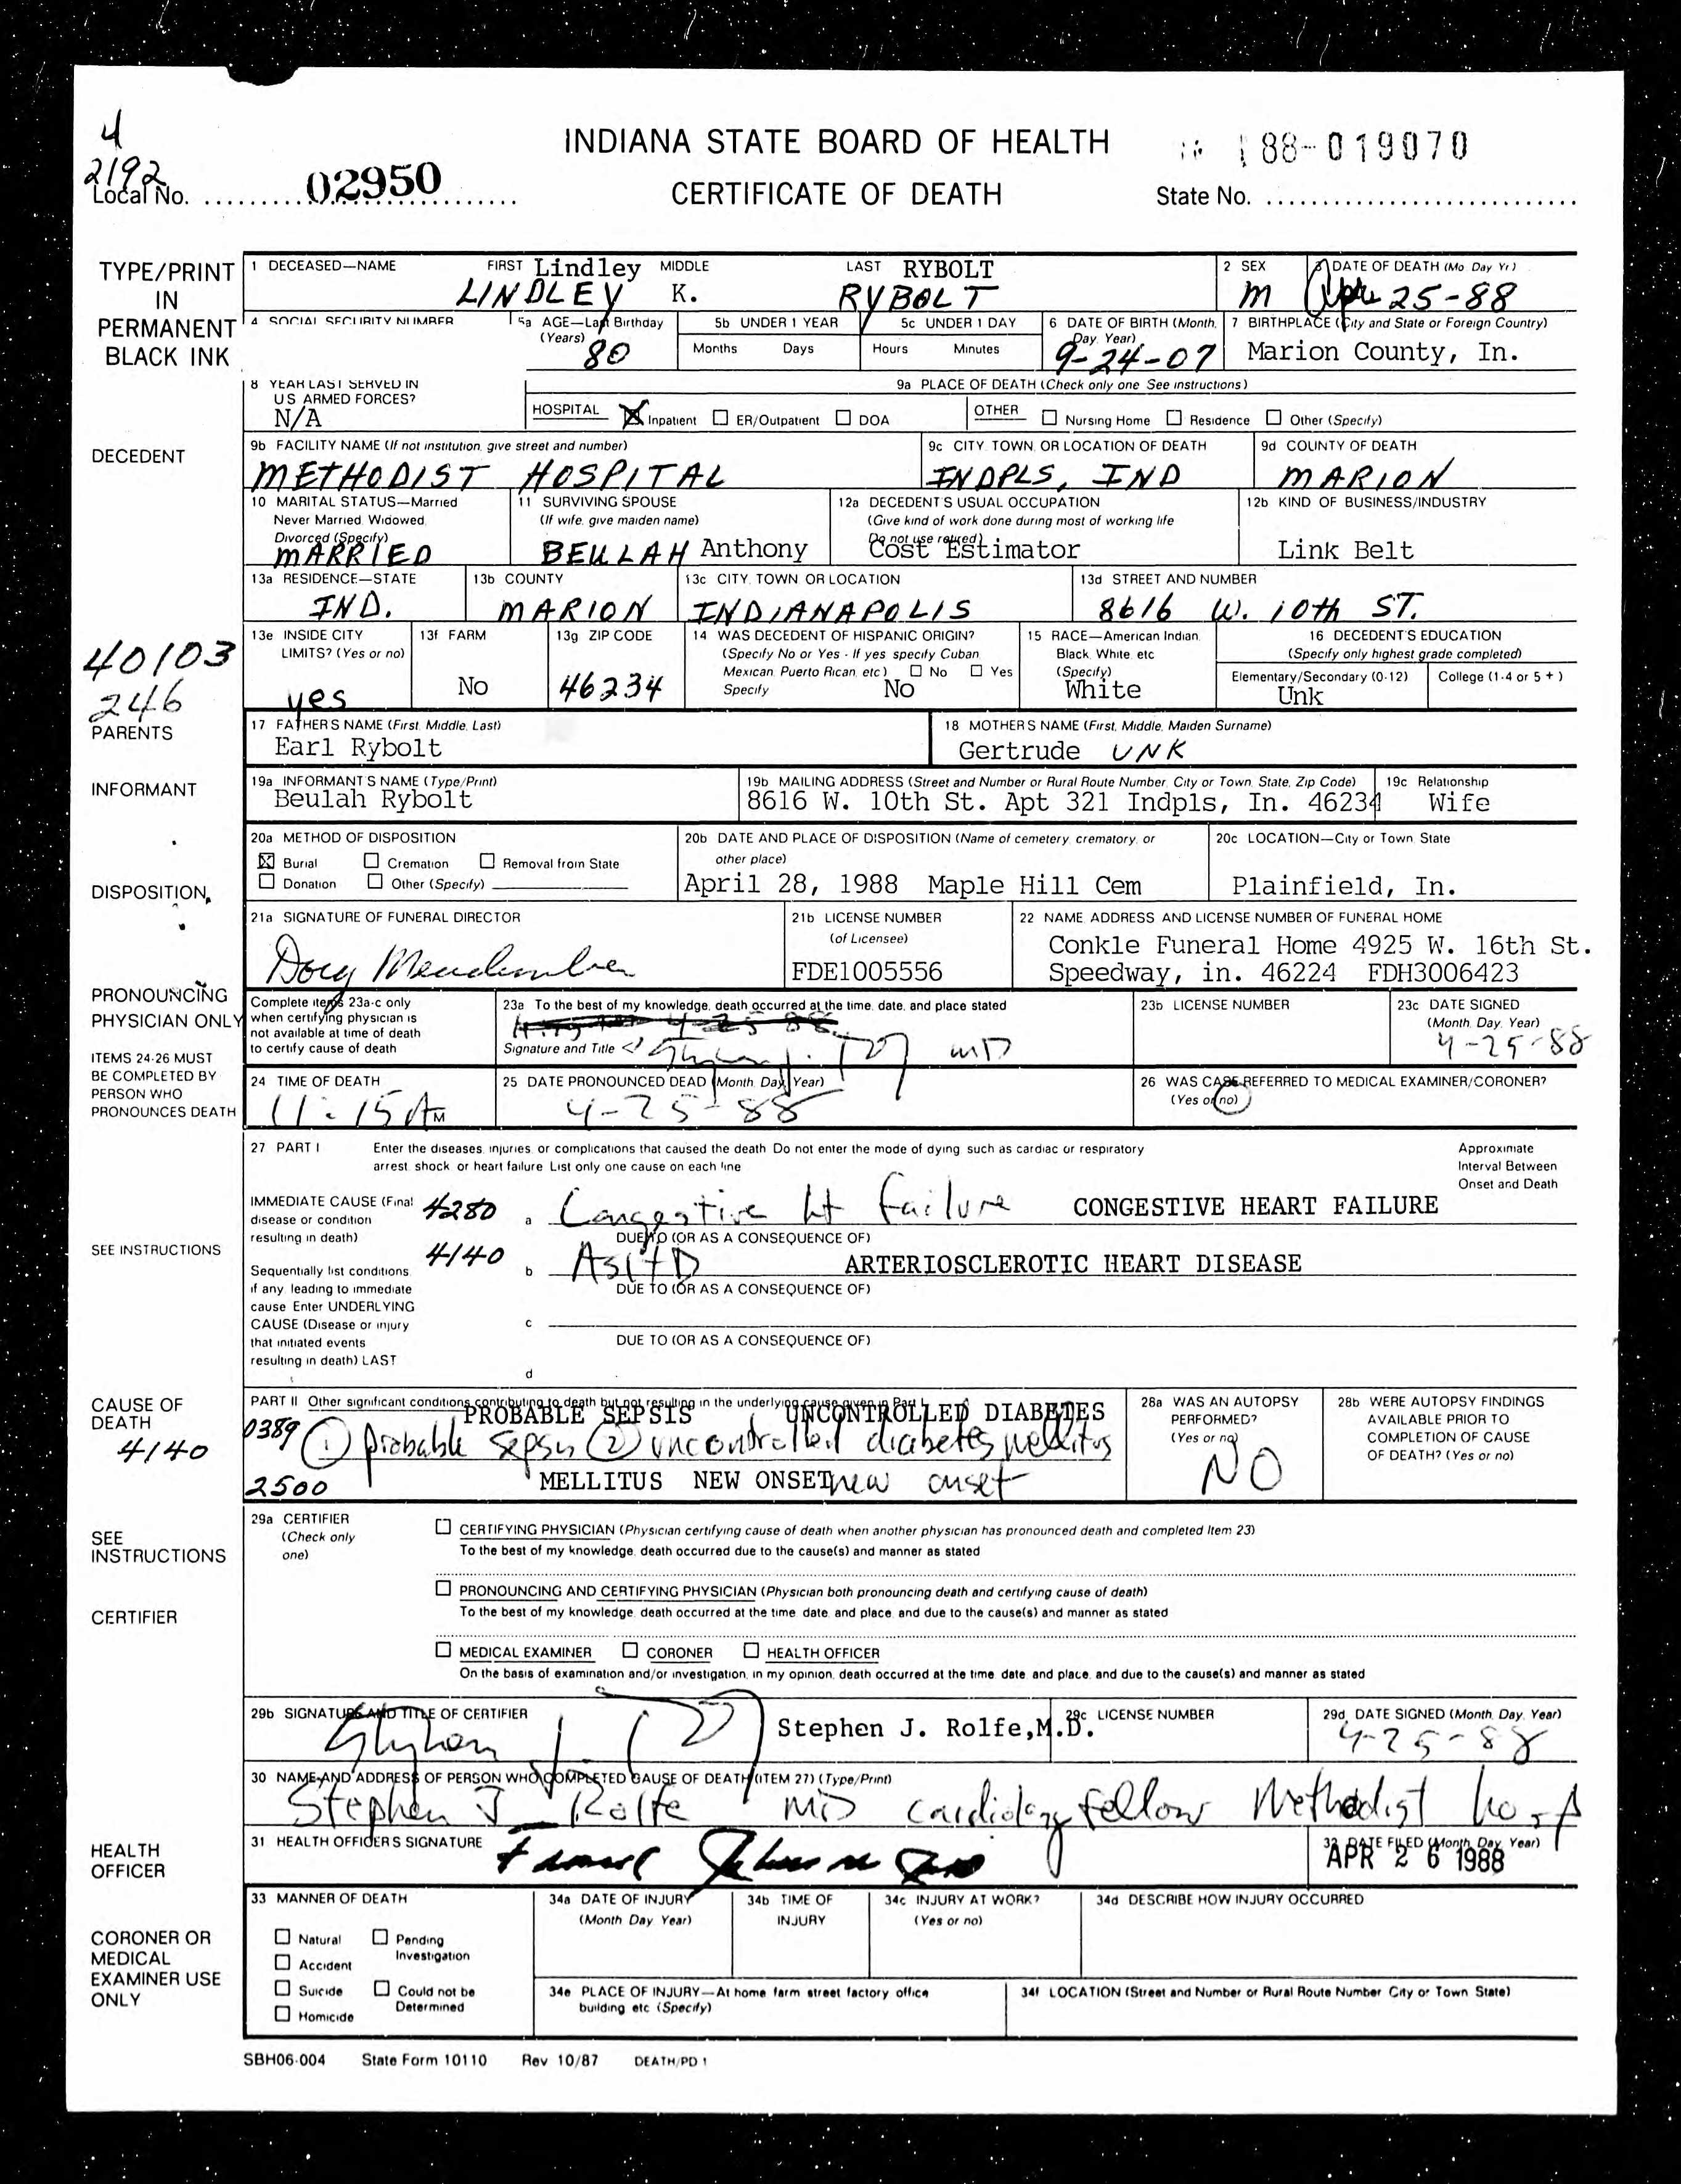 4
2192
INDIANA STATE BOARD OF HEALTH
CERTIFICATE OF DEATH
88-019070
Local No. 02950
State No.
TYPE/PRINT IN PERMANENT BLACK INK
1 DECEASED—NAME FIRST MIDDLE LAST
Lindley RYBOLT
LINDLEY K. RYBOLT
2 SEX
M
3 DATE OF DEATH (Mo Day Yr)
Apr 25-88
4 SOCIAL SECURITY NUMBER
5a AGE—Last Birthday (Years)
80
5b UNDER 1 YEAR
Months Days
5c UNDER 1 DAY
Hours Minutes
6 DATE OF BIRTH (Month, Day, Year)
9-24-07
7 BIRTHPLACE (City and State or Foreign Country)
Marion County, In.
8 YEAR LAST SERVED IN U S ARMED FORCES?
N/A
9a PLACE OF DEATH (Check only one See instructions)
HOSPITAL Inpatient ER/Outpatient DOA
OTHER Nursing Home Residence Other (Specify)
DECEDENT
9b FACILITY NAME (If not institution, give street and number)
METHODIST HOSPITAL
9c CITY, TOWN, OR LOCATION OF DEATH
INDPLS, IND
9d COUNTY OF DEATH
MARION
10 MARITAL STATUS—Married
Never Married, Widowed,
Divorced (Specify)
MARRIED
11 SURVIVING SPOUSE
(If wife, give maiden name)
BEULAH Anthony
12a DECEDENT'S USUAL OCCUPATION
(Give kind of work done during most of working life
Do not use retired)
Cost Estimator
12b KIND OF BUSINESS/INDUSTRY
Link Belt
13a RESIDENCE—STATE
IND.
13b COUNTY
MARION
13c CITY, TOWN OR LOCATION
INDIANAPOLIS
13d STREET AND NUMBER
8616 W. 10th ST.
40103
246
13e INSIDE CITY LIMITS? (Yes or no)
yes
13f FARM
No
13g ZIP CODE
46234
14 WAS DECEDENT OF HISPANIC ORIGIN?
(Specify No or Yes - If yes specify Cuban,
Mexican, Puerto Rican, etc) No Yes
Specify No
15 RACE—American Indian,
Black, White, etc
(Specify)
White
16 DECEDENT'S EDUCATION
(Specify only highest grade completed)
Elementary/Secondary (0-12) College (1-4 or 5 + )
Unk
PARENTS
17 FATHER'S NAME (First, Middle, Last)
Earl Rybolt
18 MOTHER'S NAME (First, Middle, Maiden Surname)
Gertrude UNK
INFORMANT
19a INFORMANT'S NAME (Type/Print)
Beulah Rybolt
19b MAILING ADDRESS (Street and Number or Rural Route Number, City or Town, State, Zip Code)
8616 W. 10th St. Apt 321 Indpls, In. 46234
19c Relationship
Wife
DISPOSITION
20a METHOD OF DISPOSITION
Burial Cremation Removal from State
Donation Other (Specify)
20b DATE AND PLACE OF DISPOSITION (Name of cemetery, crematory, or other place)
April 28, 1988 Maple Hill Cem
20c LOCATION—City or Town, State
Plainfield, In.
21a SIGNATURE OF FUNERAL DIRECTOR
21b LICENSE NUMBER
(of Licensee)
FDE1005556
22 NAME, ADDRESS AND LICENSE NUMBER OF FUNERAL HOME
Conkle Funeral Home 4925 W. 16th St.
Speedway, in. 46224 FDH3006423
PRONOUNCING PHYSICIAN ONLY
Complete items 23a-c only
when certifying physician is
not available at time of death
to certify cause of death
23a To the best of my knowledge, death occurred at the time, date, and place stated
Signature and Title MD
23b LICENSE NUMBER
23c DATE SIGNED
(Month, Day, Year)
4-25-88
ITEMS 24-26 MUST
BE COMPLETED BY
PERSON WHO
PRONOUNCES DEATH
24 TIME OF DEATH
11:15 A M
25 DATE PRONOUNCED DEAD (Month, Day, Year)
4-25-88
26 WAS CASE REFERRED TO MEDICAL EXAMINER/CORONER?
(Yes or no)
27 PART I Enter the diseases, injuries, or complications that caused the death Do not enter the mode of dying, such as cardiac or respiratory
arrest, shock, or heart failure List only one cause on each line
Approximate
Interval Between
Onset and Death
SEE INSTRUCTIONS
IMMEDIATE CAUSE (Final
disease or condition
resulting in death)
4280 a Congestive ht failure CONGESTIVE HEART FAILURE
DUE TO (OR AS A CONSEQUENCE OF)
4140 b ASHD ARTERIOSCLEROTIC HEART DISEASE
DUE TO (OR AS A CONSEQUENCE OF)
Sequentially list conditions,
if any, leading to immediate
cause Enter UNDERLYING
CAUSE (Disease or injury
that initiated events
resulting in death) LAST
c
DUE TO (OR AS A CONSEQUENCE OF)
d
CAUSE OF DEATH
4140
PART II Other significant conditions contributing to death but not resulting in the underlying cause given in Part I
PROBABLE SEPSIS UNCONTROLLED DIABETES
0389 1 probable sepsis 2 uncontrolled diabetes mellitus
2500 MELLITUS NEW ONSET new onset
28a WAS AN AUTOPSY
PERFORMED?
(Yes or no)
NO
28b WERE AUTOPSY FINDINGS
AVAILABLE PRIOR TO
COMPLETION OF CAUSE
OF DEATH? (Yes or no)
SEE INSTRUCTIONS
CERTIFIER
29a CERTIFIER
(Check only
one)
CERTIFYING PHYSICIAN (Physician certifying cause of death when another physician has pronounced death and completed Item 23)
To the best of my knowledge, death occurred due to the cause(s) and manner as stated
PRONOUNCING AND CERTIFYING PHYSICIAN (Physician both pronouncing death and certifying cause of death)
To the best of my knowledge, death occurred at the time, date, and place, and due to the cause(s) and manner as stated
MEDICAL EXAMINER CORONER HEALTH OFFICER
On the basis of examination and/or investigation, in my opinion, death occurred at the time, date, and place, and due to the cause(s) and manner as stated
29b SIGNATURE AND TITLE OF CERTIFIER
Stephen J. Rolfe,M.D.
29c LICENSE NUMBER
29d DATE SIGNED (Month, Day, Year)
4-25-88
30 NAME AND ADDRESS OF PERSON WHO COMPLETED CAUSE OF DEATH (ITEM 27) (Type/Print)
Stephen J Rolfe MD cardiology fellow Methodist hosp
HEALTH OFFICER
31 HEALTH OFFICER'S SIGNATURE
32 DATE FILED (Month, Day, Year)
APR 26 1988
CORONER OR
MEDICAL
EXAMINER USE
ONLY
33 MANNER OF DEATH
Natural Pending Investigation
Accident
Suicide Could not be Determined
Homicide
34a DATE OF INJURY
(Month, Day, Year)
34b TIME OF
INJURY
34c INJURY AT WORK?
(Yes or no)
34d DESCRIBE HOW INJURY OCCURRED
34e PLACE OF INJURY—At home, farm, street, factory, office
building, etc (Specify)
34f LOCATION (Street and Number or Rural Route Number, City or Town, State)
SBH06-004 State Form 10110 Rev 10/87 DEATH/PD 1